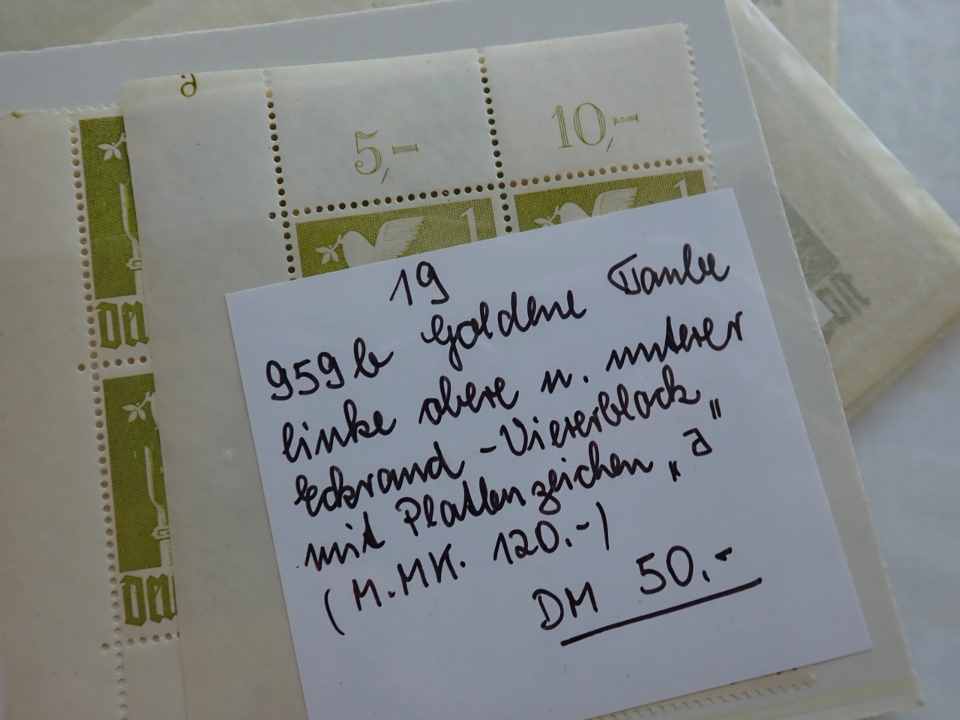 5,-
10,-
1
1
19
959b Goldene Taube
linke obere u. unterer
Eckrand-Viererblock
mit Plattenzeichen „d"
(M.MK. 120.-)
DM 50.-